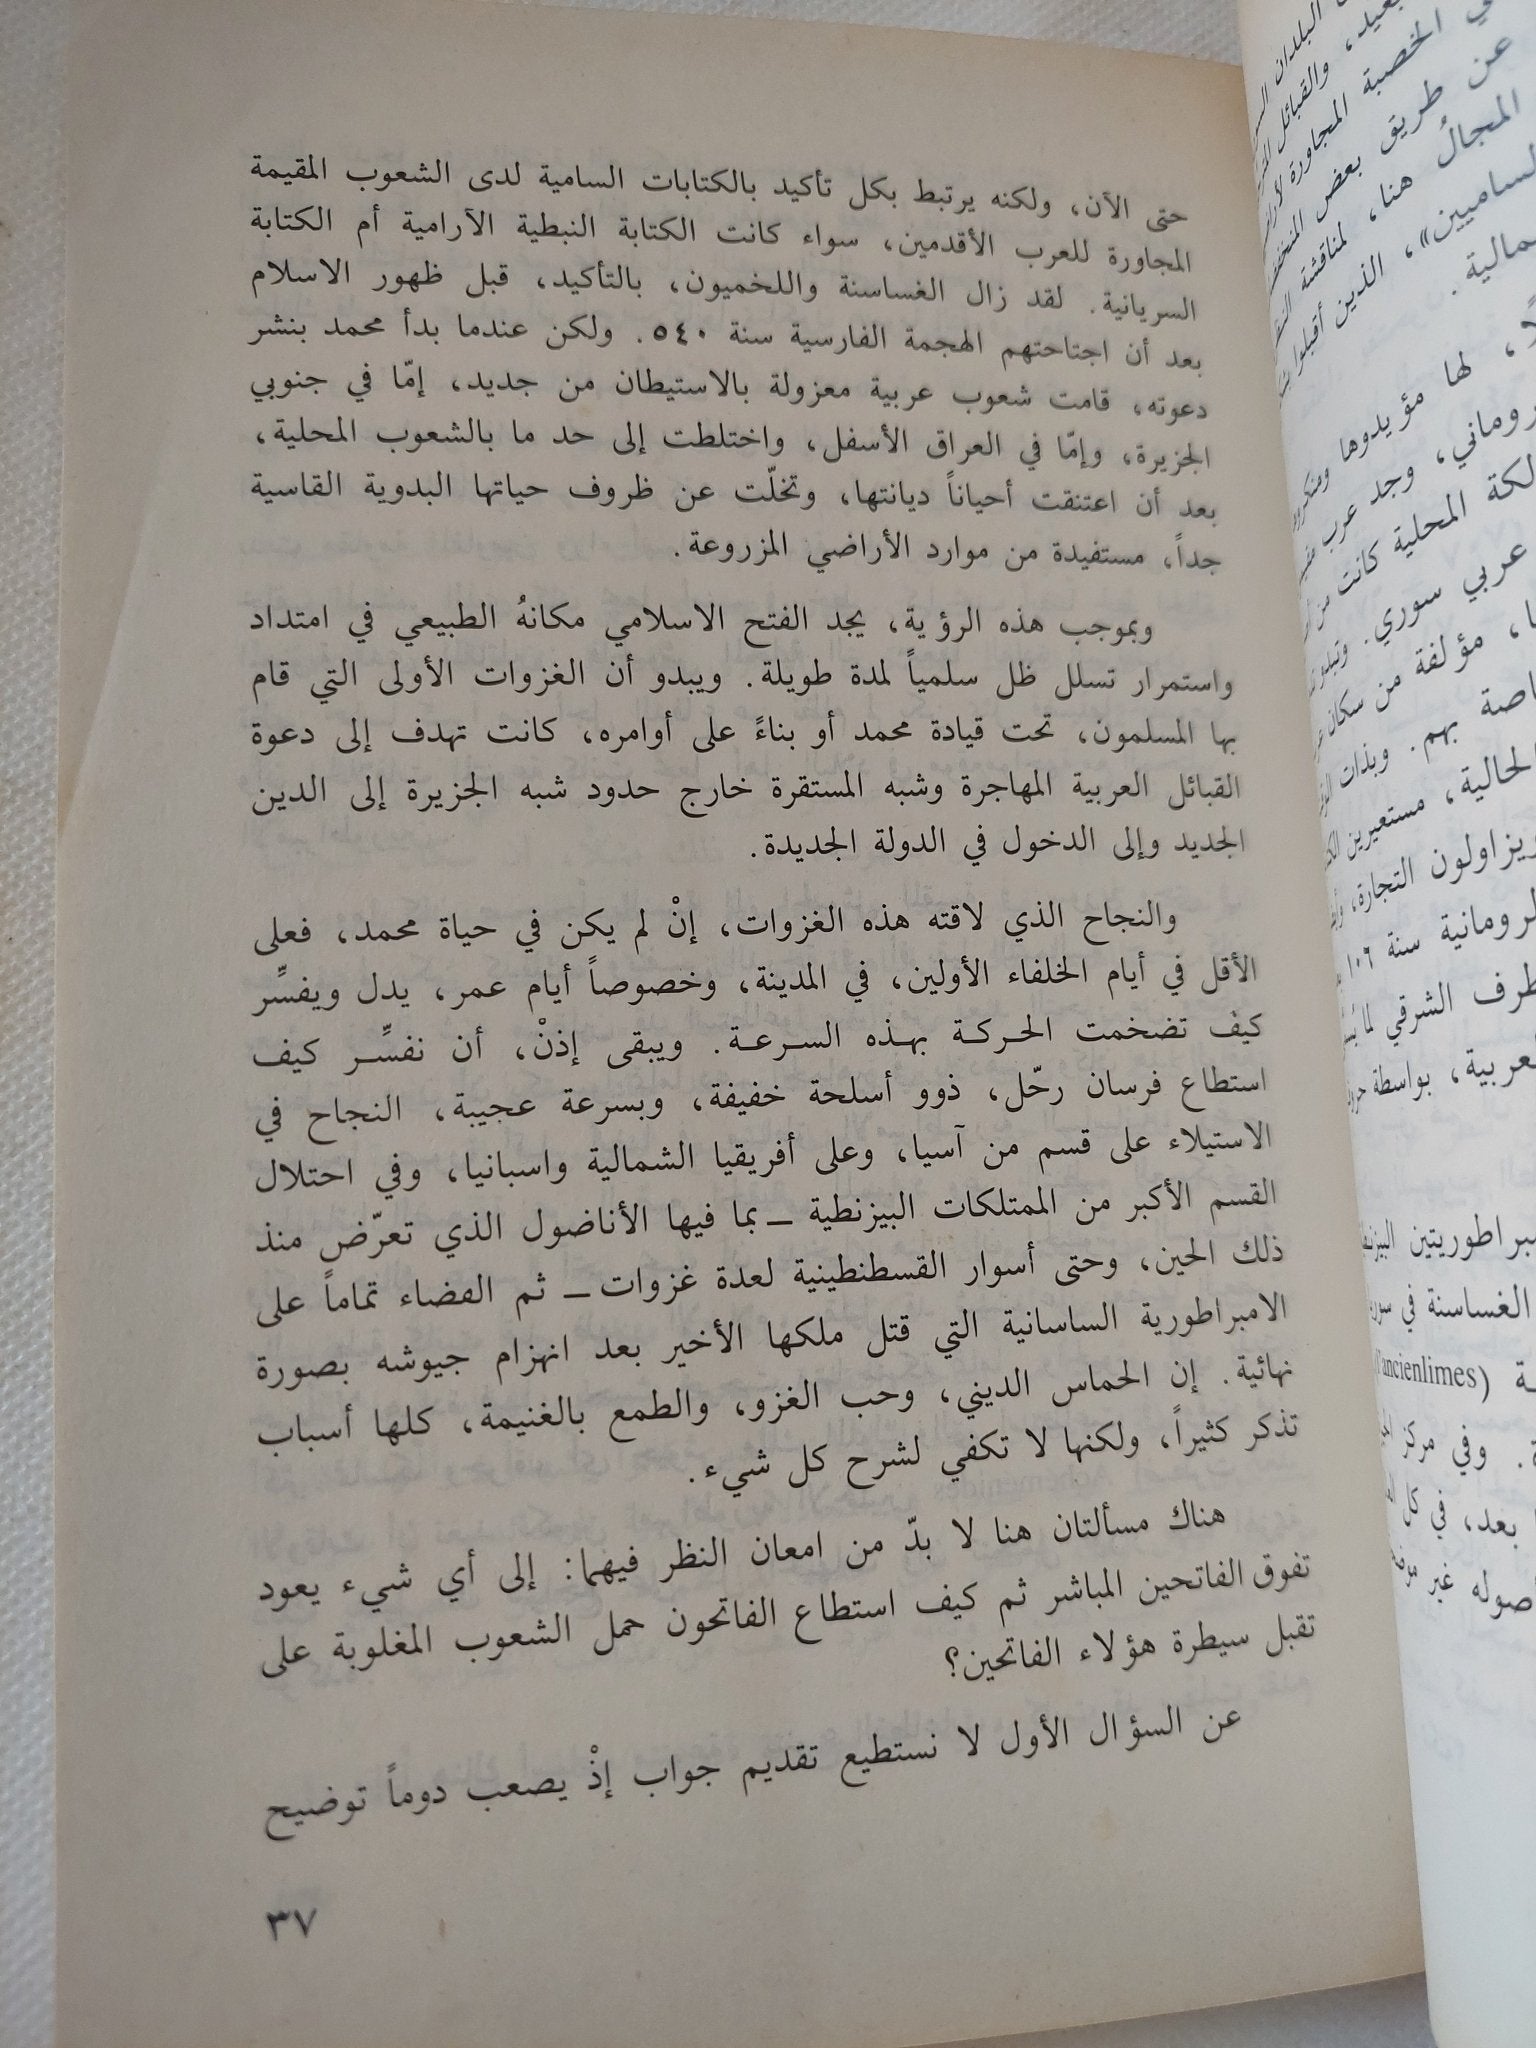 حتى الآن، ولكنه يرتبط بكل تأكيد بالكتابات السامية لدى الشعوب المقيمة
المجاورة للعرب الأقدمين، سواء كانت الكتابة النبطية الآرامية أم الكتابة
السريانية. لقد زال الغساسنة واللخميون، بالتأكيد، قبل ظهور الاسلام
بعد أن اجتاحتهم الهجمة الفارسية سنة ٥٤٠. ولكن عندما بدأ محمد بنشر
دعوته، قامت شعوب عربية معزولة بالاستيطان من جديد، إمّا في جنوبي
الجزيرة، وإمّا في العراق الأسفل، واختلطت إلى حد ما بالشعوب المحلية،
بعد أن اعتنقت أحياناً ديانتها، وتخلّت عن ظروف حياتها البدوية القاسية
جداً، مستفيدة من موارد الأراضي المزروعة.
وبموجب هذه الرؤية، يجد الفتح الاسلامي مكانهُ الطبيعي في امتداد
واستمرار تسلل ظل سلمياً لمدة طويلة. ويبدو أن الغزوات الأولى التي قام
بها المسلمون، تحت قيادة محمد أو بناءً على أوامره، كانت تهدف إلى دعوة
القبائل العربية المهاجرة وشبه المستقرة خارج حدود شبه الجزيرة إلى الدين
الجديد وإلى الدخول في الدولة الجديدة.
والنجاح الذي لاقته هذه الغزوات، إنْ لم يكن في حياة محمد، فعلى
الأقل في أيام الخلفاء الأولين، في المدينة، وخصوصاً أيام عمر، يدل ويفسِّر
كيف تضخمت الحركة بهذه السرعة. ويبقى إذنْ، أن نفسِّر كيف
استطاع فرسان رحّل، ذوو أسلحة خفيفة، وبسرعة عجيبة، النجاح في
الاستيلاء على قسم من آسيا، وعلى أفريقيا الشمالية واسبانيا، وفي احتلال
القسم الأكبر من الممتلكات البيزنطية ــ بما فيها الأناضول الذي تعرّض منذ
ذلك الحين، وحتى أسوار القسطنطينية لعدة غزوات ــ ثم القضاء تماماً على
الامبراطورية الساسانية التي قتل ملكها الأخير بعد انهزام جيوشه بصورة
نهائية. إن الحماس الديني، وحب الغزو، والطمع بالغنيمة، كلها أسباب
تذكر كثيراً، ولكنها لا تكفي لشرح كل شيء.
هناك مسألتان هنا لا بدّ من امعان النظر فيهما: إلى أي شيء يعود
تفوق الفاتحين المباشر ثم كيف استطاع الفاتحون حمل الشعوب المغلوبة على
تقبل سيطرة هؤلاء الفاتحين؟
عن السؤال الأول لا نستطيع تقديم جواب إذْ يصعب دوماً توضيح
٣٧
البلدان
والقبائل
الخصبة المجاورة
عن طريق بعض
المجالُ هنا، لمناقشة
الساميين»، الذين أقبلوا
لها مؤيدوها
وجد عرب
المحلية كانت من
عربي سوري.
مؤلفة من سكان
بهم. وبذات
الحالية، مستعيرين
يزاولون التجارة،
الرومانية سنة ١٠٦
الشرقي
بواسطة
الغساسنة في
(l'ancienlimes)
وفي مركز
بعد، في كل
غير